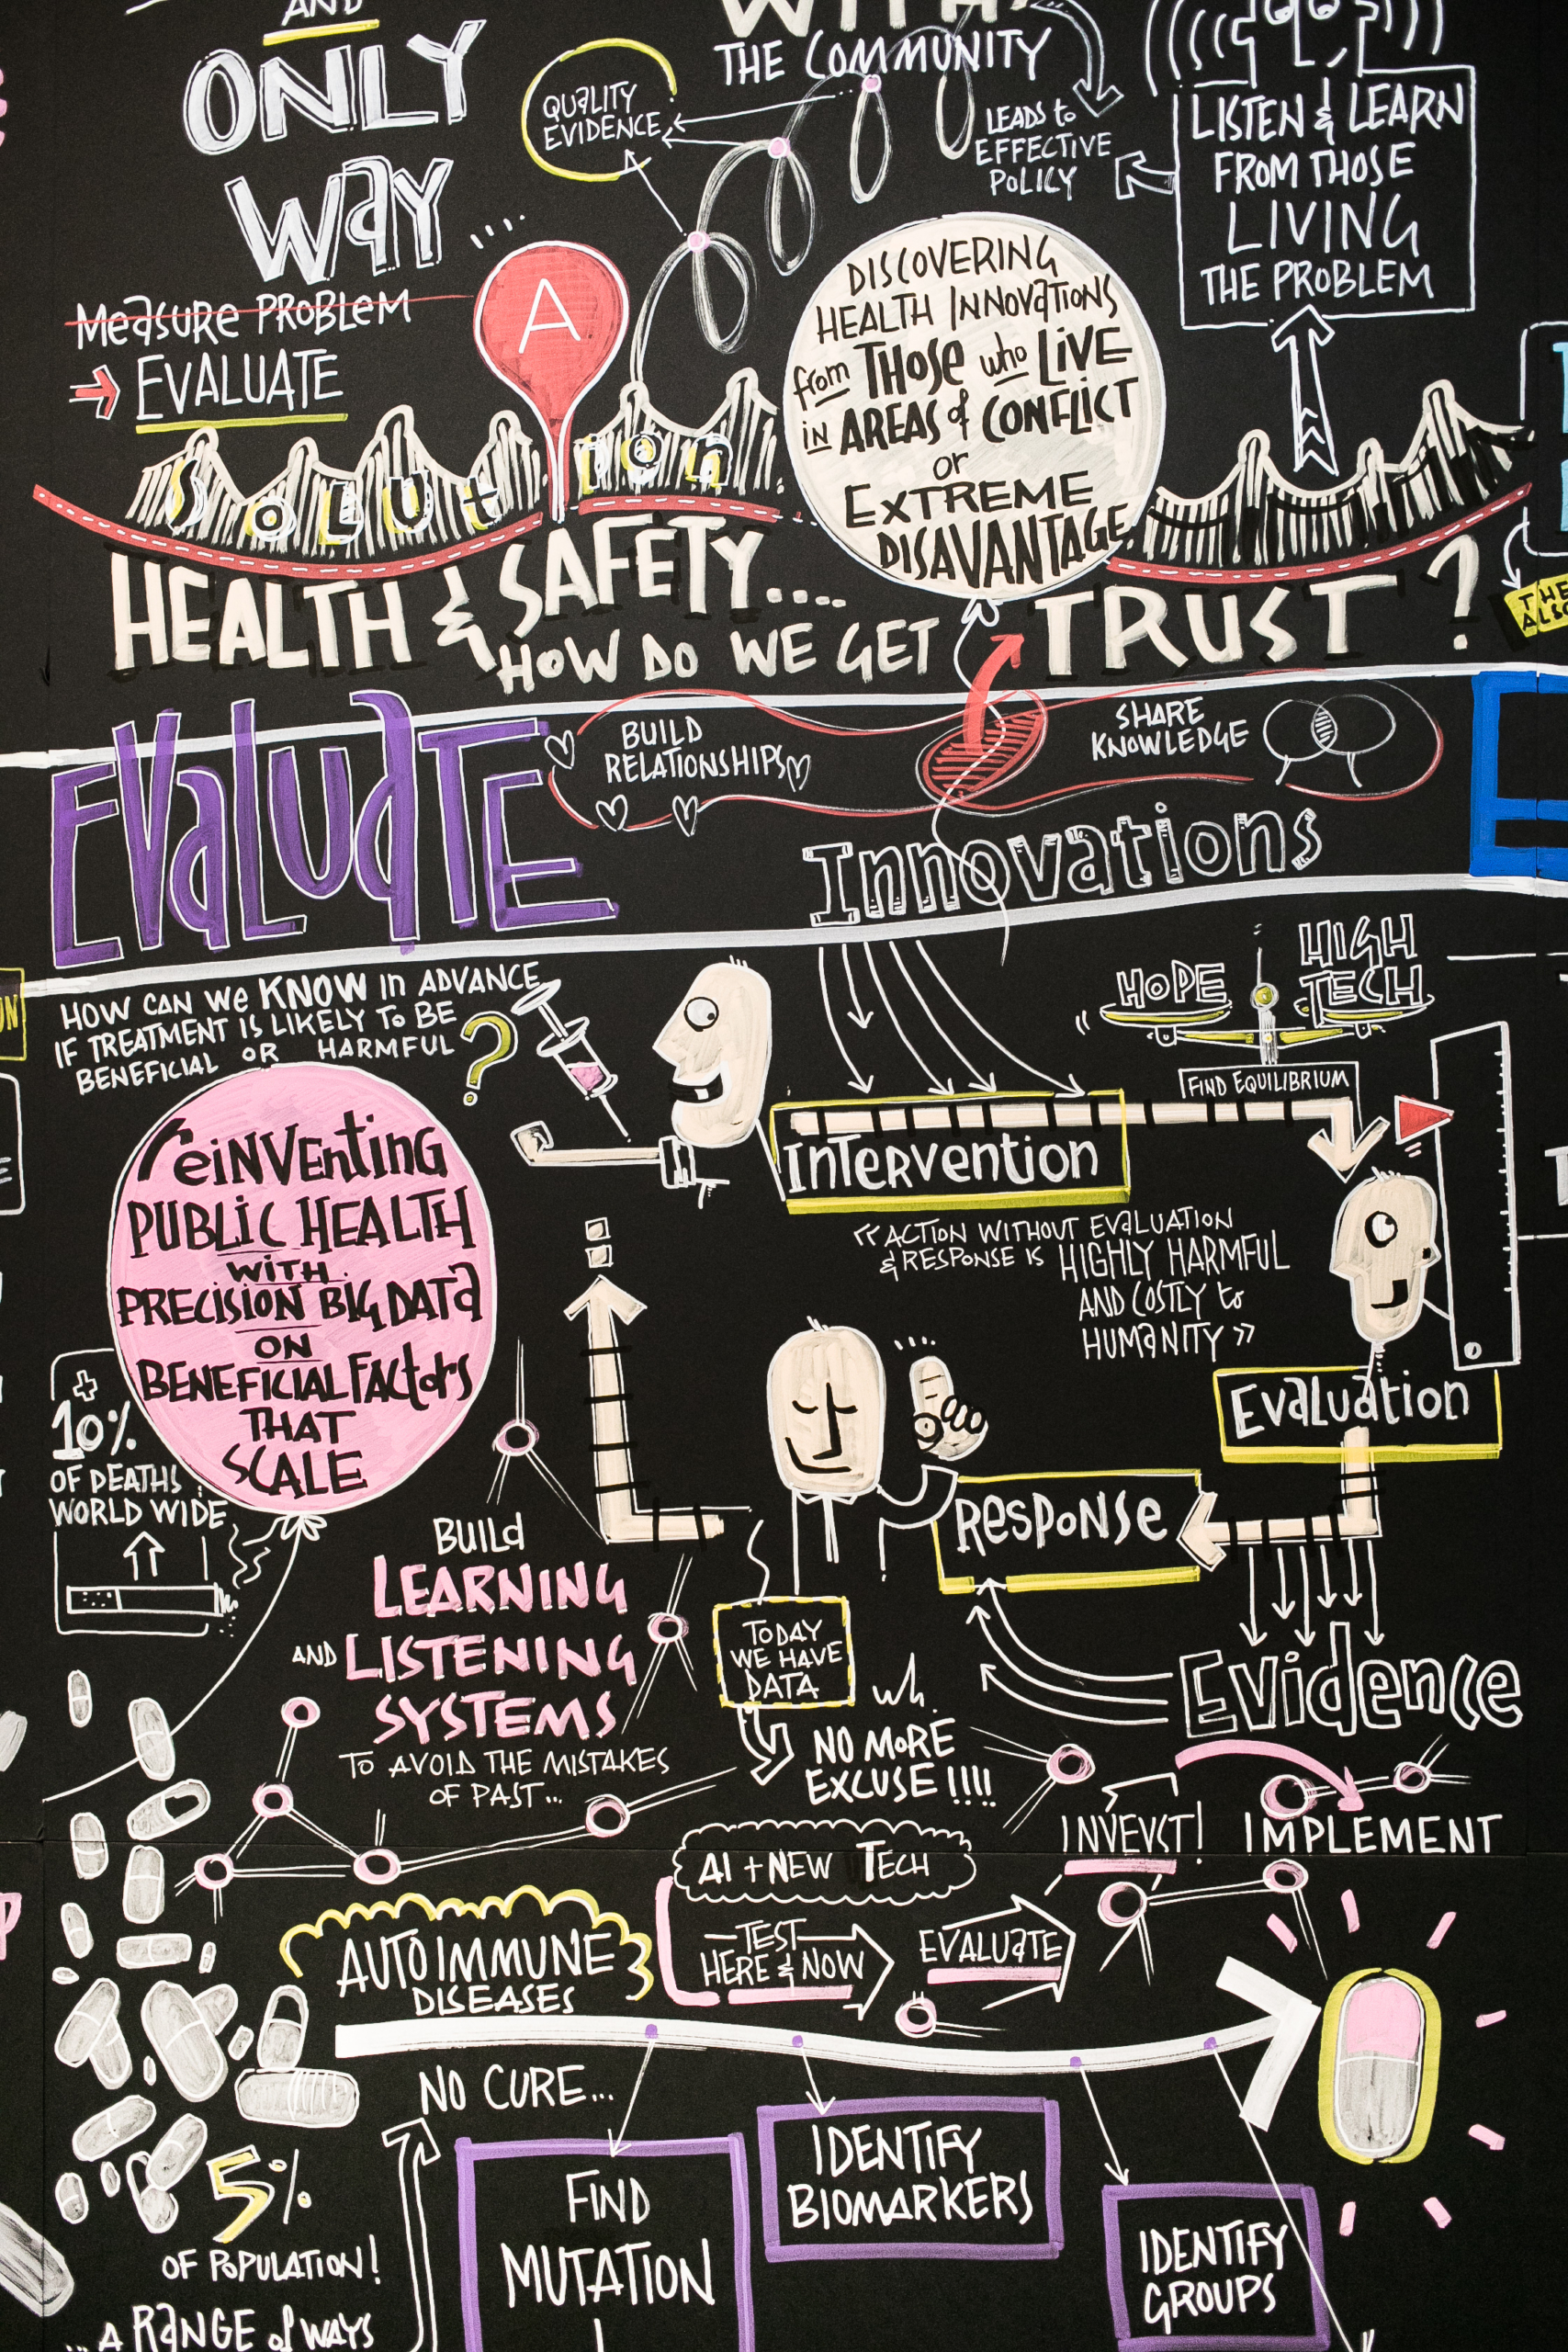 AND
ONLY
WAY...
Measure PROBLEM
EVALUATE
WITH
THE COMMUNITY
QUALITY
EVIDENCE
LEADS to
EFFECTIVE
POLICY
LISTEN & LEARN
FROM THOSE
LIVING
THE PROBLEM
A
DISCOVERING
HEALTH INNOVATIONS
from THOSE who LIVE
in AREAS of CONFLICT
or
EXTREME
DISAVANTAGE
SOLUtion
HEALTH & SAFETY....
HOW DO WE GET TRUST?
THE
ALSO
EVALUATE
BUILD
RELATIONSHIPS
SHARE
KNOWLEDGE
Innovations
E
HOW CAN We KNOW in ADVANCE
IF TREATMENT IS LIKELY To BE
BENEFICIAL OR HARMFUL ?
HOPE
HIGH
TECH
FIND EQUILIBRIUM
Intervention
reiNVENting
PUBLIC HEALTH
WITH
PRECISION BIG DATA
ON
BENEFICIAL FACtorS
THAT
SCALE
« ACTION WITHOUT EVALUATION
& RESPONSE IS HIGHLY HARMFUL
AND COSTLY to
HUMANITY »
Evaluation
+
10%
OF DEATHS
WORLD WIDE
RESPONSe
Evidence
BUILd
LEARNING
AND LISTENING
SYSTEMS
To AVOID THE MISTAKES
OF PAST...
TODAY
WE HAVE
DATA
NO MORE
EXCUSE !!!!
INVEVST!
IMPLEMENT
AI + NEW TECH
TEST
HERE & NOW
EVALUATE
AUTO IMMUNE
DISEASES
NO CURE...
5%
OF POPULATION!
...A RANGE of WAYS
FIND
MUTATION
IDENTIFY
BIOMARKERS
IDENTIFY
GROUPS